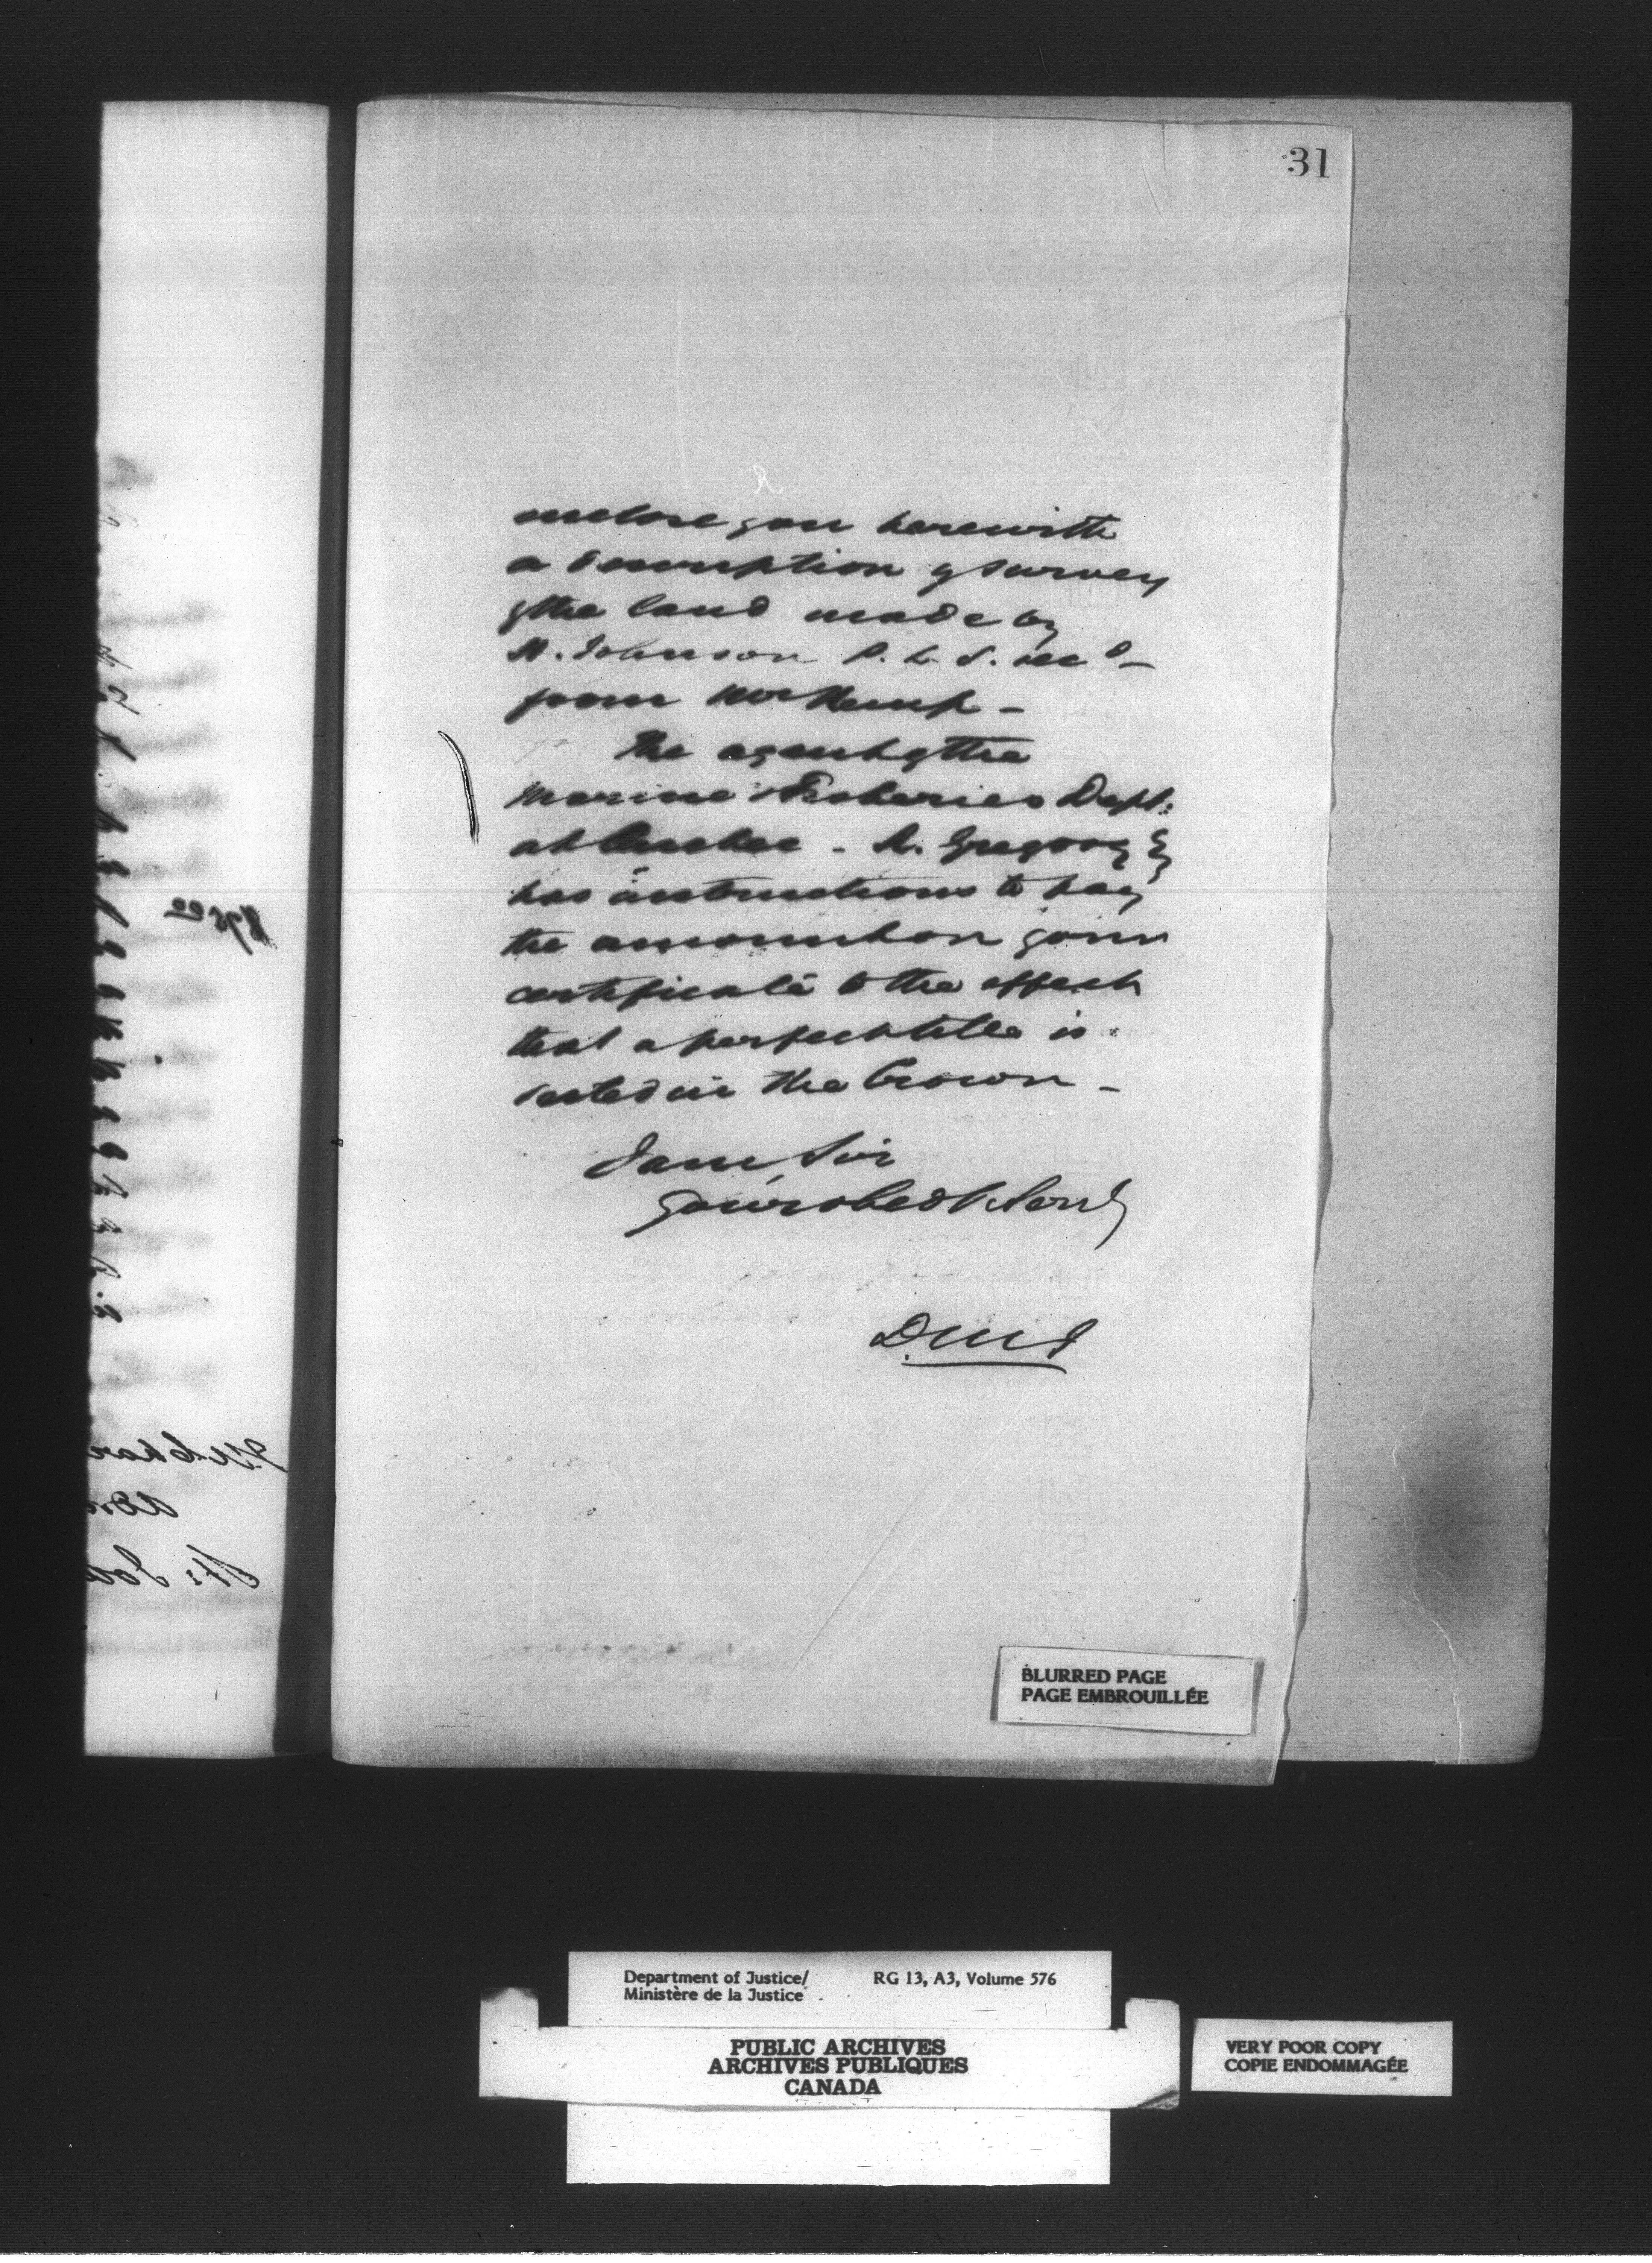 31
enclose you herewith
a description of survey
of the land made by
H. Johnson P. L. S.
from Mr Kemp -
The agent of the
Marine & Fisheries Dept:
at Quebec - A. Gregory Esq
has instructions to pay
the amount on your
certificate to the effect
that a perfect title is
vested in the Crown -
I am, Sir
Your obedt Servt
D.M.J
BLURRED PAGE
PAGE EMBROUILLÉE
Department of Justice/ RG 13, A3, Volume 576
Ministère de la Justice
PUBLIC ARCHIVES
ARCHIVES PUBLIQUES
CANADA
VERY POOR COPY
COPIE ENDOMMAGÉE